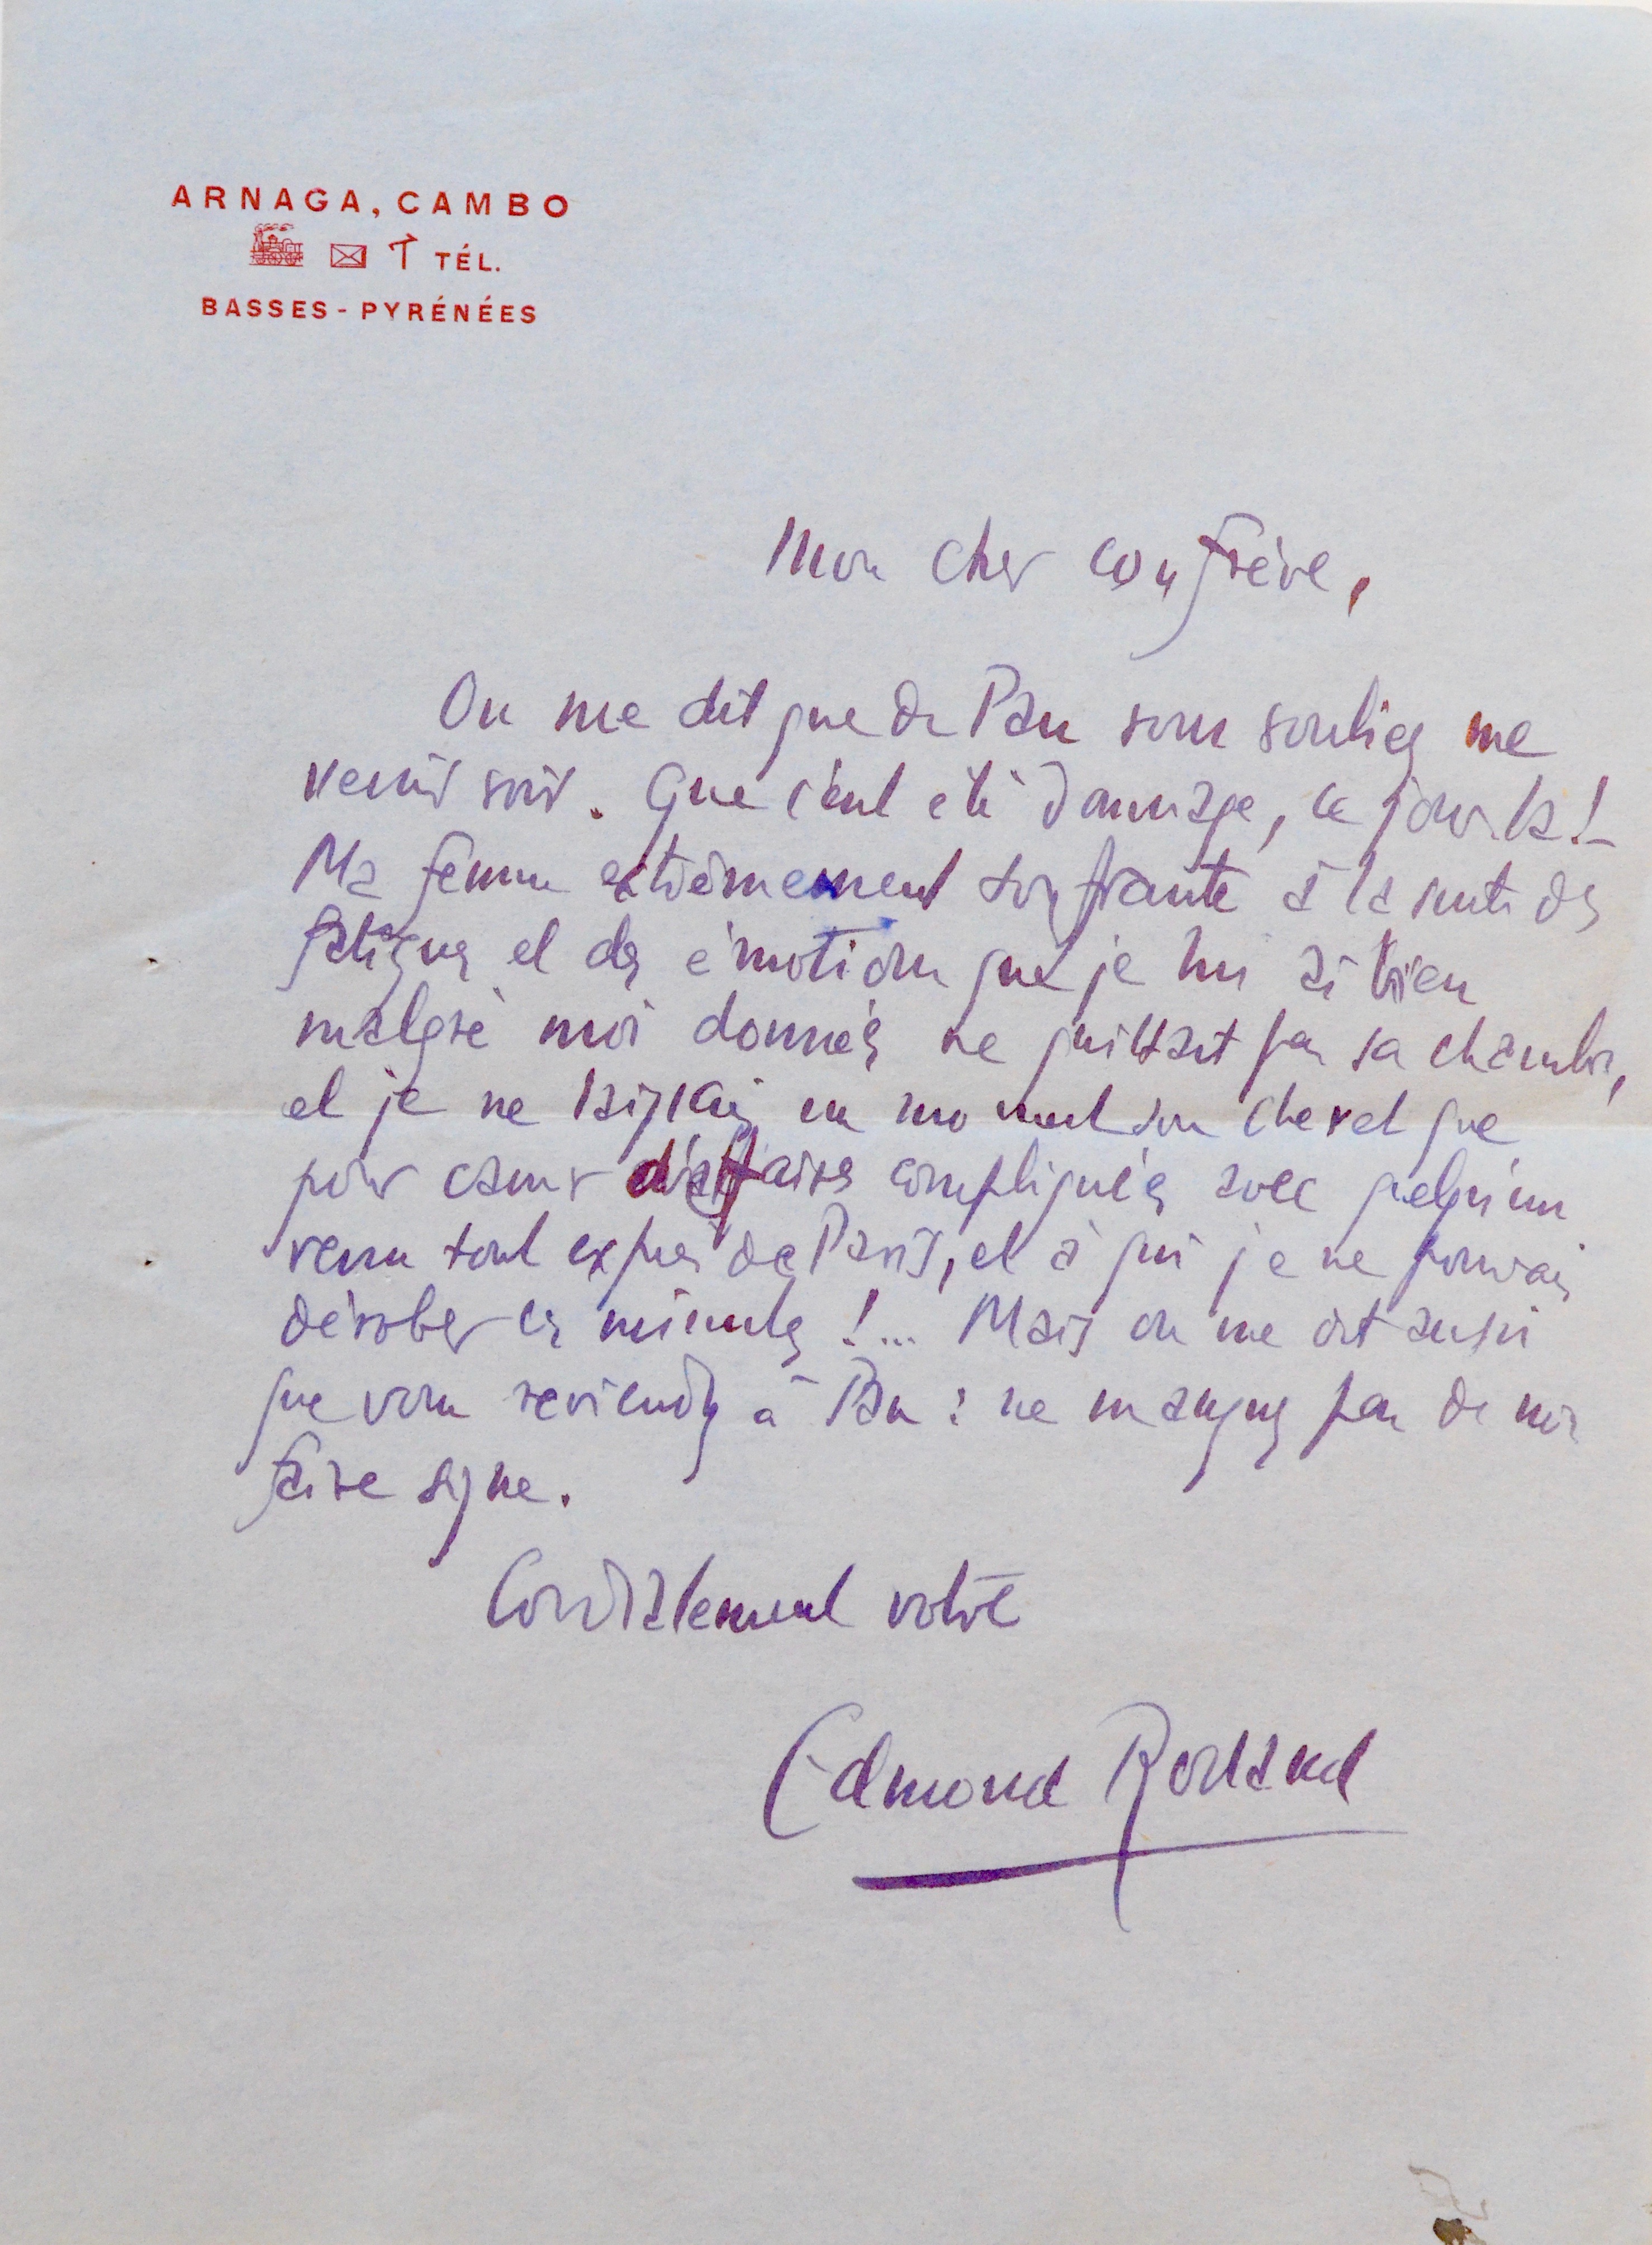 ARNAGA, CAMBO
TÉL.
BASSES-PYRÉNÉES
Mon cher confrère,
On me dit que de Pau vous vouliez me
venir voir. Que c'eut été dommage, ce jour là !
Ma femme extrêmement souffrante à la suite des
fatigues et des émotions que je lui ai bien
malgré moi données ne quittait pas sa chambre,
et je ne laissais un moment son chevet que
pour causer d'affaires compliquées avec quelqu'un
venu tout exprès de Paris, et à qui je ne pouvais
dérober ces minutes !... Mais on me dit aussi
que vous reviendrez à Pau : ne manquez pas de me
faire signe.
Cordialement votre
Edmond Rostand